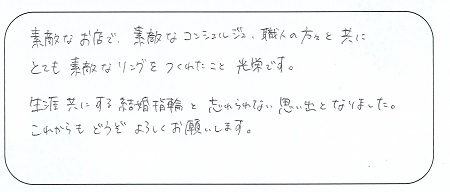 素敵なお店で、素敵なコンシェルジュ、職人の方々と共に
とても素敵なリングをつくれたこと光栄です。
生涯共にする結婚指輪と忘れられない思い出となりました。
これからもどうぞよろしくお願いします。